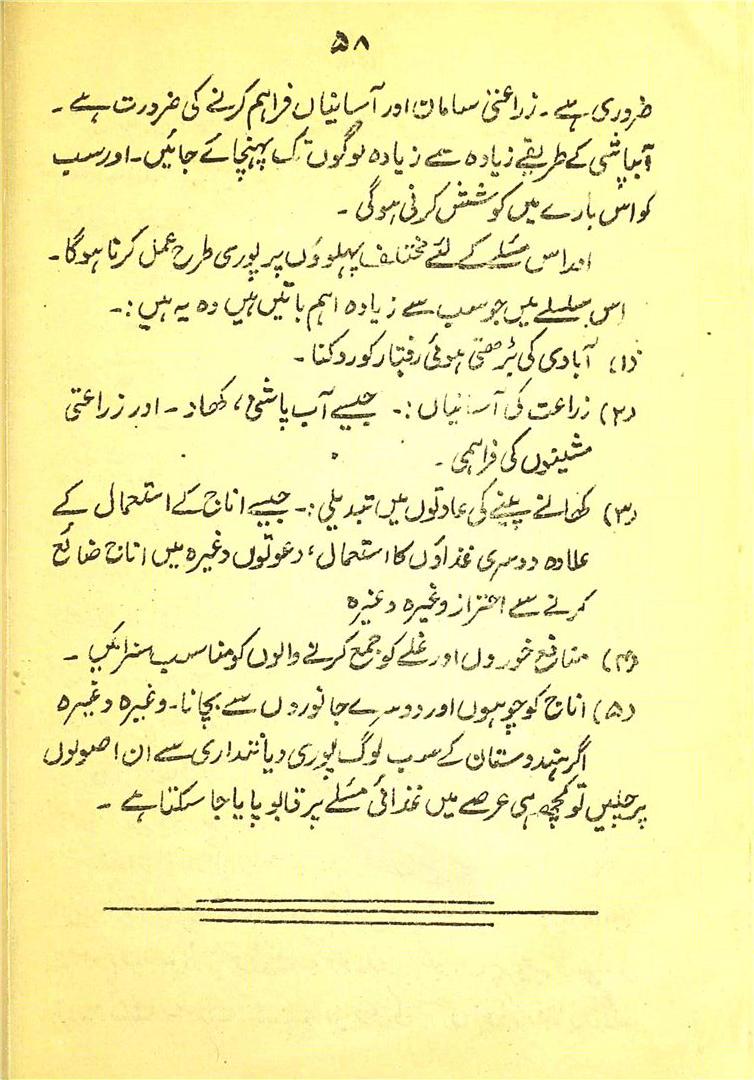 ۵۸
ضروری ہے۔ زراعتی سامان اور آسانیاں فراہم کرنے کی ضرورت ہے۔
آبپاشی کے طریقے زیادہ سے زیادہ لوگوں تک پہنچائے جائیں۔ اور سب
کو اس بارے میں کوشش کرنی ہوگی۔
اور اس مسئلے کے لئے مختلف پہلوؤں پر پوری طرح عمل کرنا ہوگا۔
اس سلسلے میں جو سب سے زیادہ اہم باتیں ہیں وہ یہ ہیں:۔
(۱) آبادی کی بڑھتی ہوئی رفتار کو روکنا۔
(۲) زراعت کی آسانیاں:۔ جیسے آب پاشی، کھاد۔ اور زراعتی
مشینوں کی فراہمی۔
(۳) کھانے پینے کی عادتوں میں تبدیلی:۔ جیسے اناج کے استعمال کے
علاوہ دوسری غذاؤں کا استعمال، دعوتوں وغیرہ میں اناج ضائع
کرنے سے احتراز وغیرہ وغیرہ
(۴) منافع خوروں اور غلے کو جمع کرنے والوں کو مناسب سزائیں۔
(۵) اناج کو چوہوں اور دوسرے جانوروں سے بچانا۔ وغیرہ وغیرہ
اگر ہندوستان کے سب لوگ پوری دیانتداری سے ان اصولوں
پر چلیں تو کچھ ہی عرصے میں غذائی مسئلے پر قابو پایا جا سکتا ہے۔